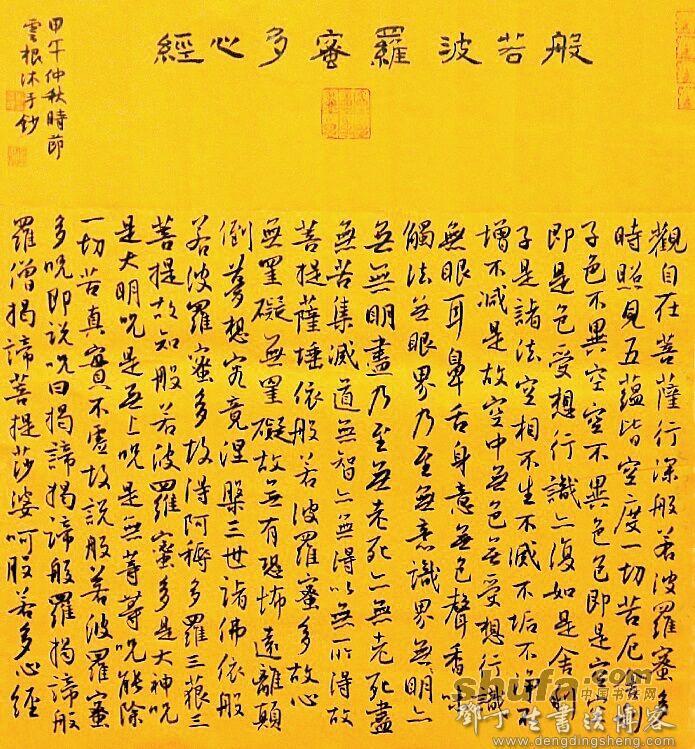 般若波羅蜜多心經
觀自在菩薩行深般若波羅蜜多
時照見五蘊皆空度一切苦厄舍利
子色不異空空不異色色即是空空
即是色受想行識亦復如是舍利
子是諸法空相不生不滅不垢不淨不
增不減是故空中無色無受想行識
無眼耳鼻舌身意無色聲香味
觸法無眼界乃至無意識界無明亦
無無明盡乃至無老死亦無老死盡
無苦集滅道無智亦無得以無所得故
菩提薩埵依般若波羅蜜多故心
無罣礙無罣礙故無有恐怖遠離顛
倒夢想究竟涅槃三世諸佛依般
若波羅蜜多故得阿耨多羅三藐三
菩提故知般若波羅蜜多是大神咒
是大明咒是無上咒是無等等咒能除
一切苦真實不虛故說般若波羅蜜
多咒即說咒曰揭諦揭諦般羅揭諦般
羅僧揭諦菩提莎婆呵般若多心經
甲午仲秋時節
雲根沐手鈔
shufa.com
中国书法网
鄧丁生書法博客
www.dengdingsheng.com